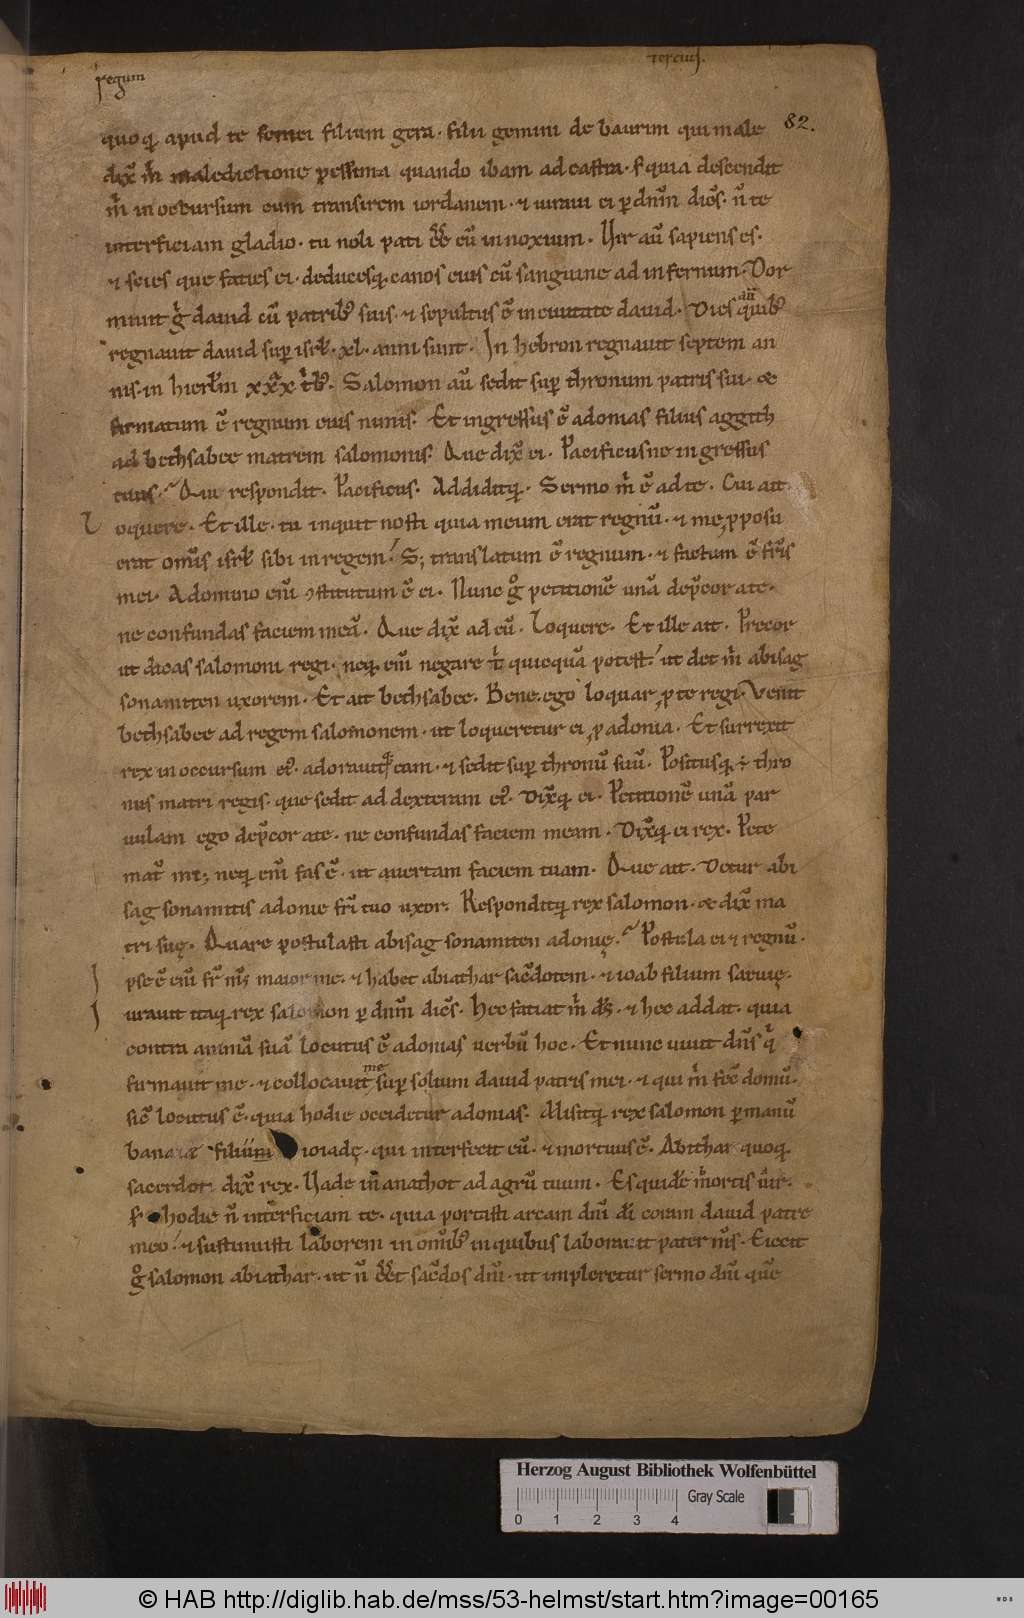 regum
tercius.
82.
quoq; apud te semei filium gera· filii gemini de baurim qui male
dix̄ m̄ maledictione pessima quando ibam ad castra· s; quia descendit
m̄ in occursum cum transirem iordanem· ⁊ iuraui ei ꝑ dnm̄ dicēs· ñ te
interficiam gladio· tu noli pati eē eū innoxium· Uir aū sapiens es·
⁊ scies que facies ei· deducesq; canos eius cū sanguine ad infernum· Dor
miuit g̊ dauid cū patribꝰ suis· ⁊ sepultus ē in ciuitate dauid· Dies aū quibꝰ
regnauit dauid suꝑ isrł· xl· anni sunt· In hebron regnauit septem an
nis· in hierłm xxx tibꝰ· Salomon aū sedit suꝑ thronum patris sui· &
firmatum ē regnum eius nimis· Et ingressus ē adonias filius aggith
ad bethsabee matrem salomonis· Que dix̄ ei· Pacificusne ingressus
tuus· Qui respondit· Pacificus· Addiditq; · Sermo m̄ ē ad te· Cui ait·
Loquere· Et ille· tu inquit nosti quia meum erat regnū· ⁊ me ꝓposu
erat om̄is isrł sibi in regem· S; translatum ē regnum· ⁊ factum ē fr̄is
mei· A domino enī ꝯstitutum ē ei· Nunc g̊ petitionē unā dep̄cor a te·
ne confundas faciem meā· Que dix̄ ad eū· Loquere· Et ille ait· Precor
ut dicas salomoni regi· neq; enī negare t̄ quicquā potest· ut det m̄ abisag
sonamiten uxorem· Et ait bethsabee· Bene· ego loquar ꝓ te regi· Venit
bethsabee ad regem salomonem· ut loqueretur ei ꝓ adonia· Et surrexit
rex in occursum eiꝰ· adorauitq; eam· ⁊ sedit suꝑ thronū suū· Positusq; ÷ thro
nus matri regis· que sedit ad dexteram eiꝰ· Dix̄q; ei· Petitionē unā par
uulam ego dep̄cor a te· ne confundas faciem meam· Dix̄q; ei rex· Pete
mat̄ mi; neq; enī fas ē· ut auertam faciem tuam· Que ait· Detur abi
sag sonamitis adonie fr̄i tuo uxor· Responditq; rex salomon· & dix̄ ma
tri suę· Quare postulasti abisag sonamiten adonię· Postula ei ⁊ regnū·
Ipse ē enī fr̄ mS maior me· ⁊ habet abiathar sac̄dotem· ⁊ ioab filium saruię·
Iurauit itaq; rex salomon ꝑ dnm̄ dicēs· Hec faciat m̄ ds̄· ⁊ hec addat· quia
contra animā suā locutus ē adonias uerbū hoc· Et nunc uiuit dn̄s q̇
firmauit me· ⁊ collocauit me suꝑ solium dauid patris mei· ⁊ qui m̄ fec̄ domū·
sic̄ locutus ē· quia hodie occidetur adonias· Misitq; rex salomon ꝑ manū
banaiæ filium ioiadę· qui interfecit eū· ⁊ mortuus ē· Abithar quoq;
sacerdoti dix̄ rex· Uade in anathot ad agrū tuum· Es quidē mortis uir·
s; hodie ñ interficiam te· quia portasti arcam dn̄i di̅ coram dauid patre
meo· ⁊ sustinuisti laborem in om̄ibꝰ in quibus laborauit pater mS· Eiecit
g̊ salomon abiathar· ut ñ eēt sac̄dos dn̄i· ut impleretur sermo dn̄i quē
Herzog August Bibliothek Wolfenbüttel
Gray Scale
0 1 2 3 4
© HAB http://diglib.hab.de/mss/53-helmst/start.htm?image=00165